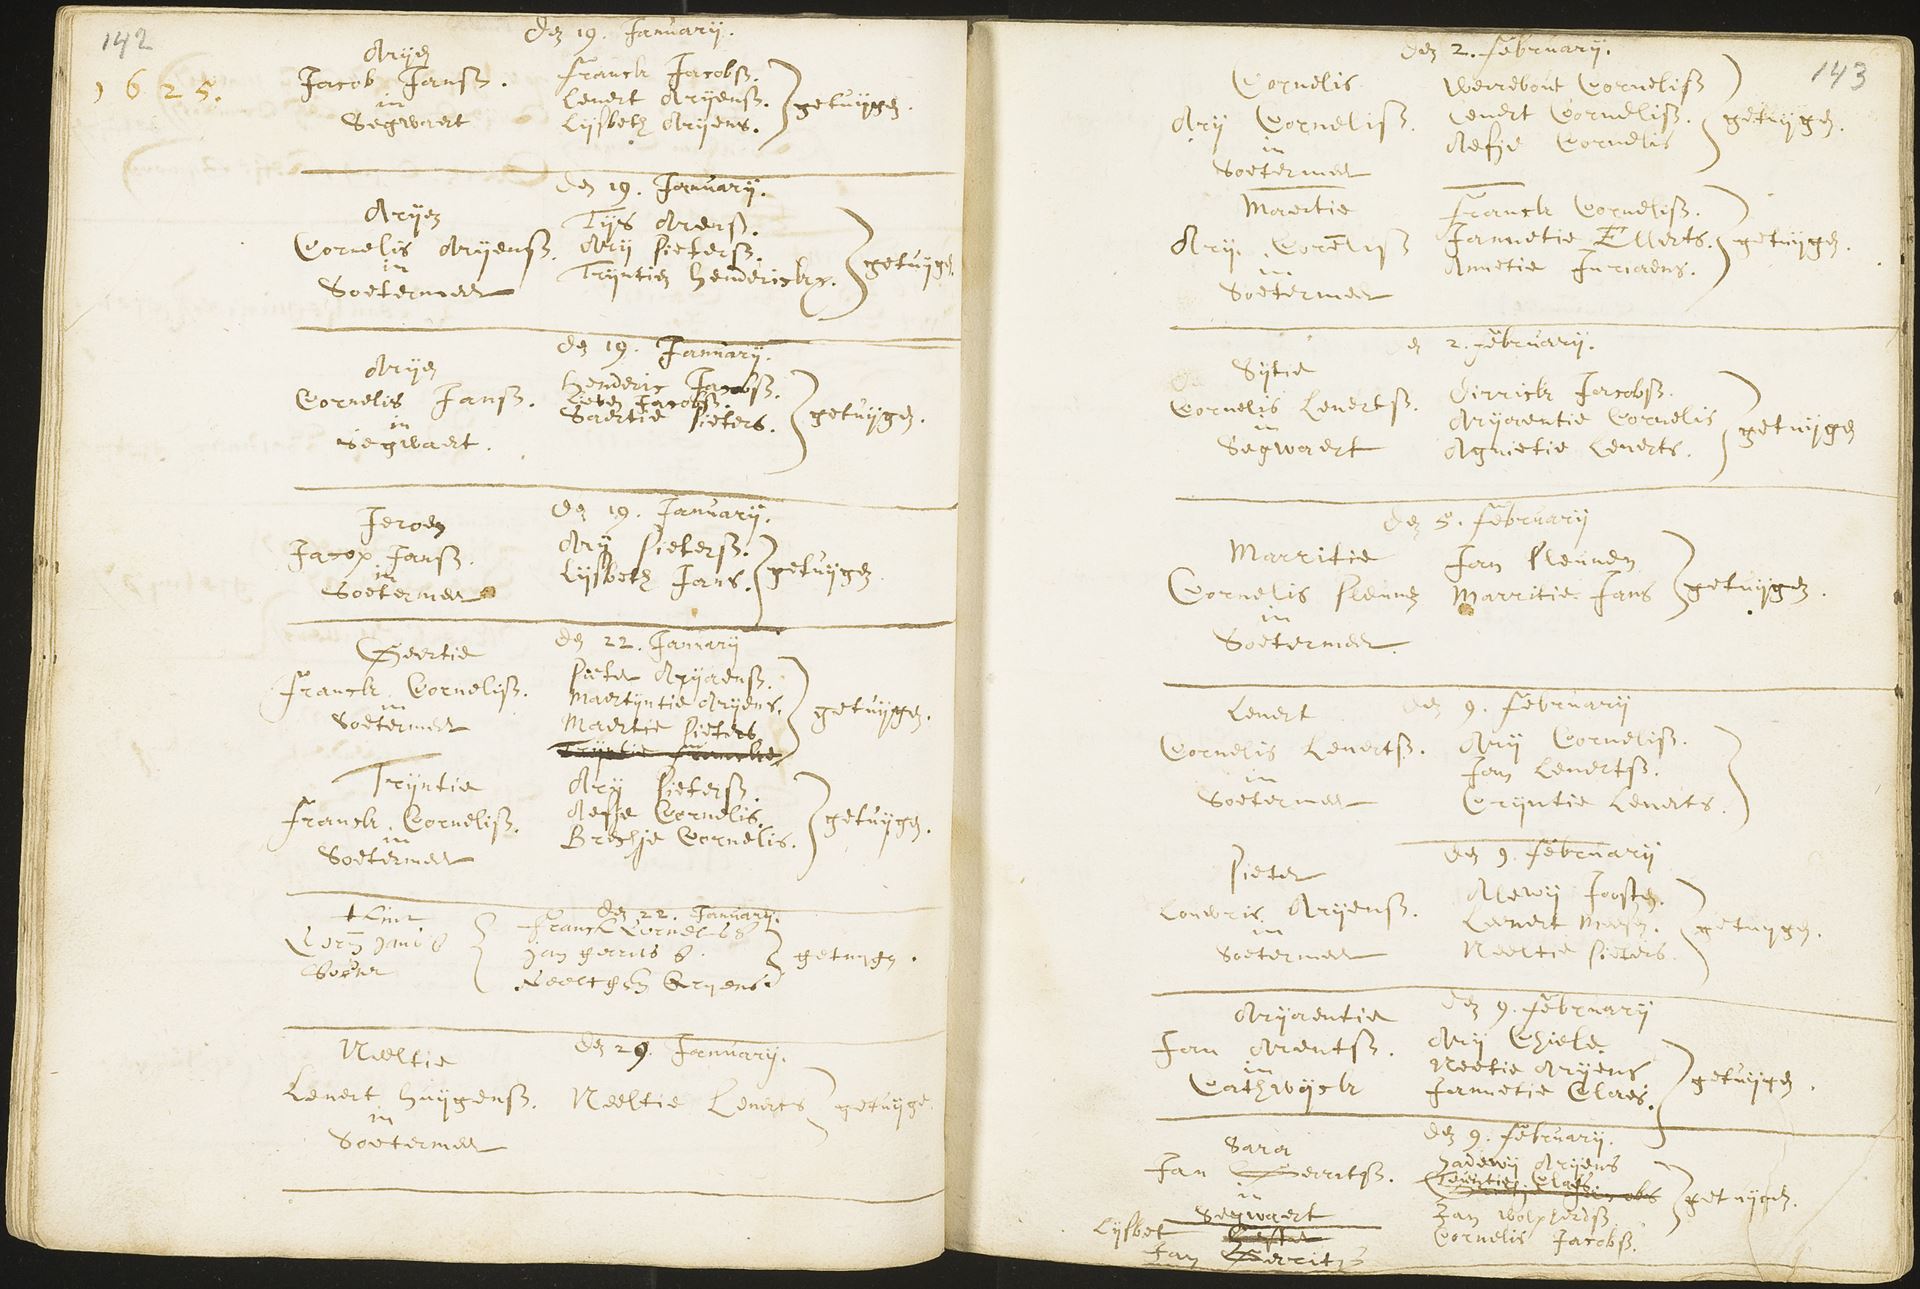 142
1625.
den 19. Januarij.
Arijen
Jacob Jansz.
in
Segwaert
Franck Jacobsz.
Lenert Arijensz.
Lijsbeth Arijens.
getuijgen.
den 19. Januarij.
Arijen
Cornelis Arijensz.
in
Soetermeer
Tijs Arensz.
Arij Pietersz.
Trijntien Hendericks.
getuijgen.
den 19. Januarij.
Arijen
Cornelis Jansz.
in
Segwaert.
Henderic Jacobsz.
Jacobsz.
Saertie Pieters.
getuijgen.
den 19. Januarij.
Jeroen
Jacop Jansz.
in
Soetermeer
Arij Pietersz.
Lijsbeth Jans.
getuijgen.
den 22. Januarij
Geertie
Franck Cornelisz.
in
Soetermeer
Pieter Arijaensz.
Maertijntie Arijens.
Maertie Pieters
getuijgen.
Trijntie
Franck Cornelisz.
in
Soetermeer
Arij Pietersz.
Aefje Cornelis.
Brechje Cornelis.
getuijgen.
den 22. Januarij.
Franck Cornelis
Jan Gerrits
Neeltgen Aryens
getuygen.
den 29. Januarij.
Neeltie
Lenert Huijgensz.
in
Soetermeer
Neeltie Lenerts
getuijge.
143
den 2. Februarij.
Cornelis
Arij Cornelisz.
in
Soetermeer
Werrebout Cornelisz
Lenert Cornelisz.
Aefje Cornelis
getuijgen.
Maertie
Arij Cornelisz
in
Soetermeer
Franck Cornelisz.
Jannetie Ellerts.
Annetie Juriaens.
getuijgen.
den 2. Februarij.
Sijtie
Cornelis Lenertsz.
in
Segwaert
Dirrick Jacobsz.
Arijaentie Cornelis
Agnietie Lenerts.
getuijgen
den 5. Februarij
Marritie
Cornelis Pleunen
in
Soetermeer.
Jan Pleunen
Marritie Jans
getuijgen.
den 9. Februarij
Lenert
Cornelis Lenertsz.
in
Soetermeer
Arij Cornelisz.
Jan Lenertsz.
Crijntie Lenerts.
den 9. Februarij
Pieter
Louwris Arijensz.
in
Soetermeer
Alewij Joosten.
Leenert
Neeltie Pieters.
getuijgen.
den 9. Februarij
Arijaentie
Jan Arentsz.
in
Cathwijck
Arij Chiele.
Neetie Arijens
Jannetie Claes.
getuijgen.
den 9. Februarij.
Sara
Jan Gerritsz.
in
Segwaert
Hadewij Arijens
Claes.
Jan Wolphertsz
Cornelis Jacobsz.
getuijgen.
Lijsbet
Jan Gerritsz